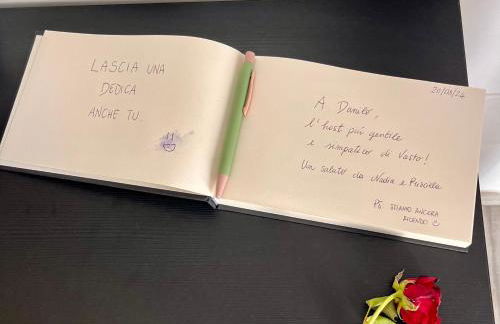 LASCIA UNA
DEDICA
ANCHE TU.
20/08/24
A Danilo,
l'host più gentile
e simpatico di Vasto!
Un saluto da Nadia e Priscilla
PS STIAMO ANCORA
RIDENDO